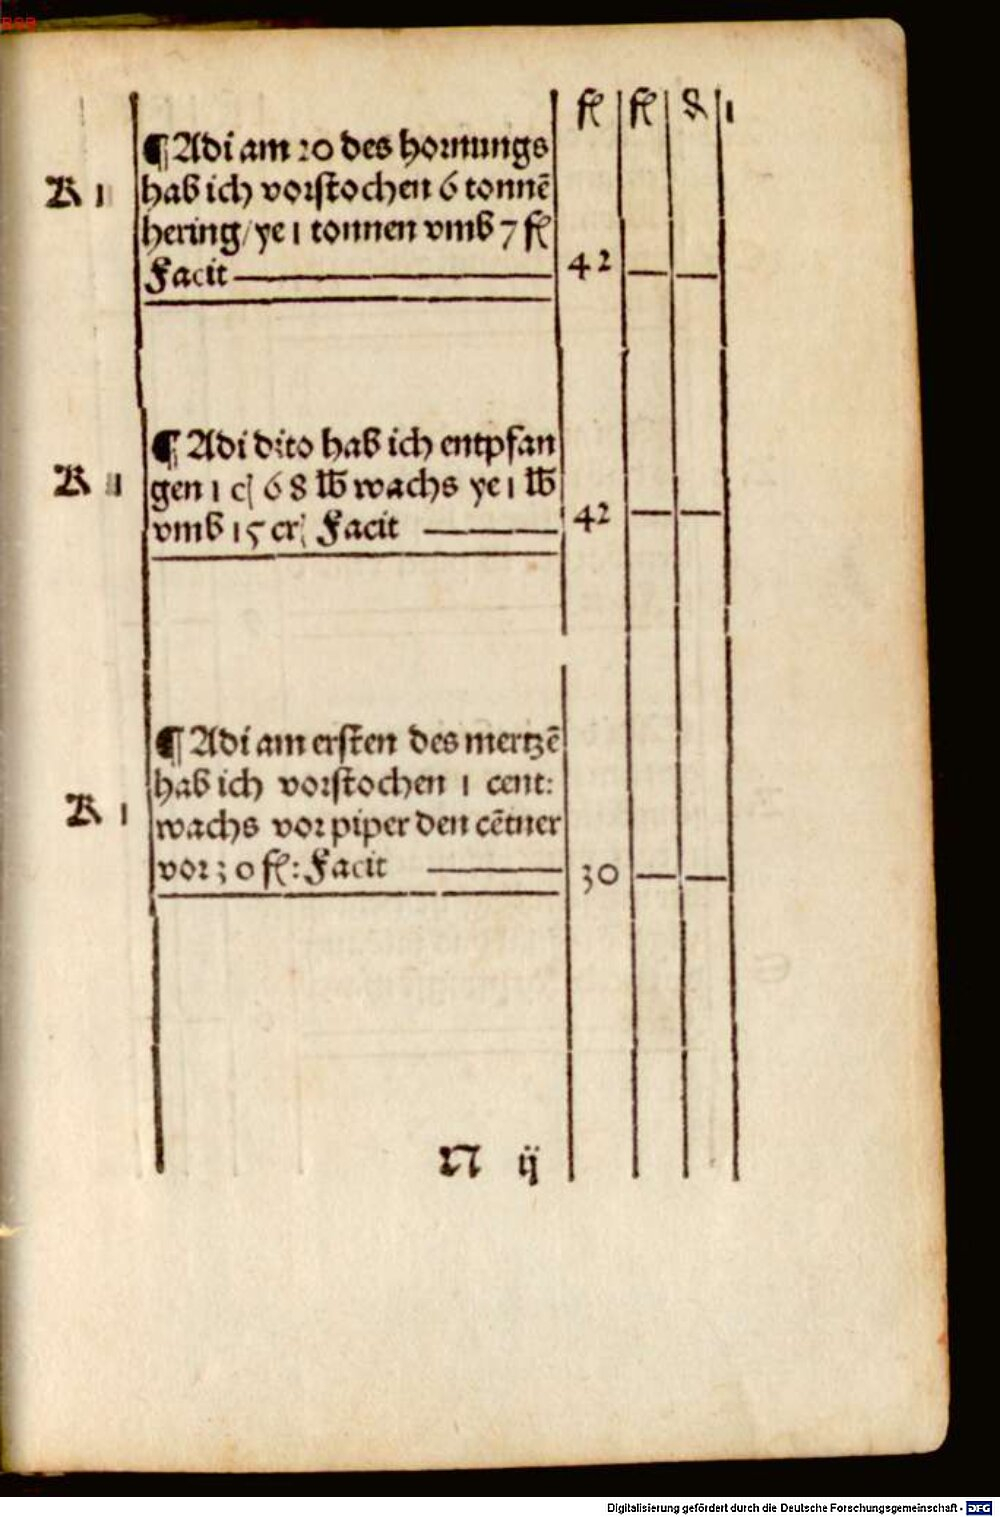 fl fl ₰ 1
¶ Adi am 20 des hornungs
K 1 hab ich vorstochen 6 tonnē
hering/ ye 1 tonnen vmb 7 fl
Facit 42
¶ Adi dito hab ich entpfan
K gen 1 c 68 lb wachs ye 1 lb
vmb 15 cr Facit 42
¶ Adi am ersten des mertzē
hab ich vorstochen 1 cent:
K 1 wachs vor piper den cētner
vor 30 fl: Facit 30
N ij
Digitalisierung gefördert durch die Deutsche Forschungsgemeinschaft - DFG